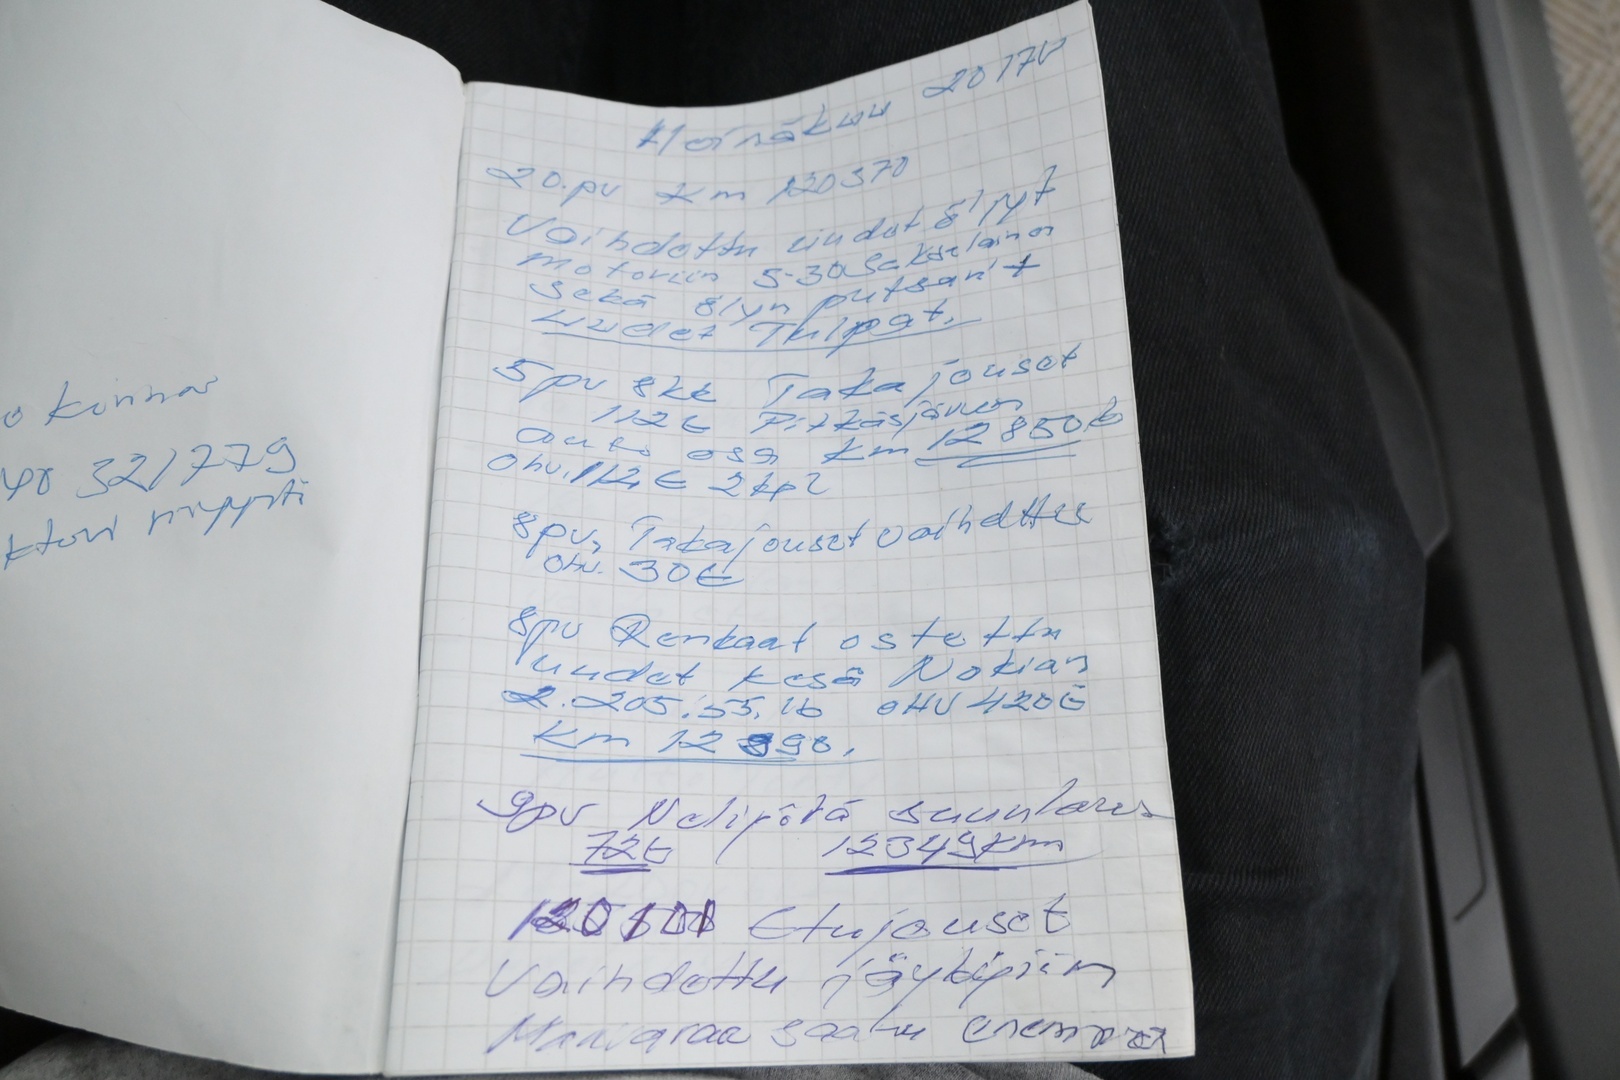 o kinnar
32/779
Heinäkuu 2017V
20.pv Km 120370
Vaihdettu uudet öljyt
motoriin 5-30 saksalainen
sekä öljyn putsari +
uudet Tulpat.
5pv 8kk Takajouset
112€ Pitkäsjärven
auto osa km 12850
Ohv. 112€ 2kpl
8pv, Takajouset vaihdettu
Ohv. 30€
8pv Renkaat ostettu
uudet kesä Nokian
2.205.55.16 OHV 420€
Km 12890.
9pv Nelipötä suuntaus
72€ 12349Km
Etujouset
Vaihdettu jäykipiin
saatu enempää